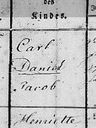 des
Kindes.
Carl
Daniel
Jacob
Henriette